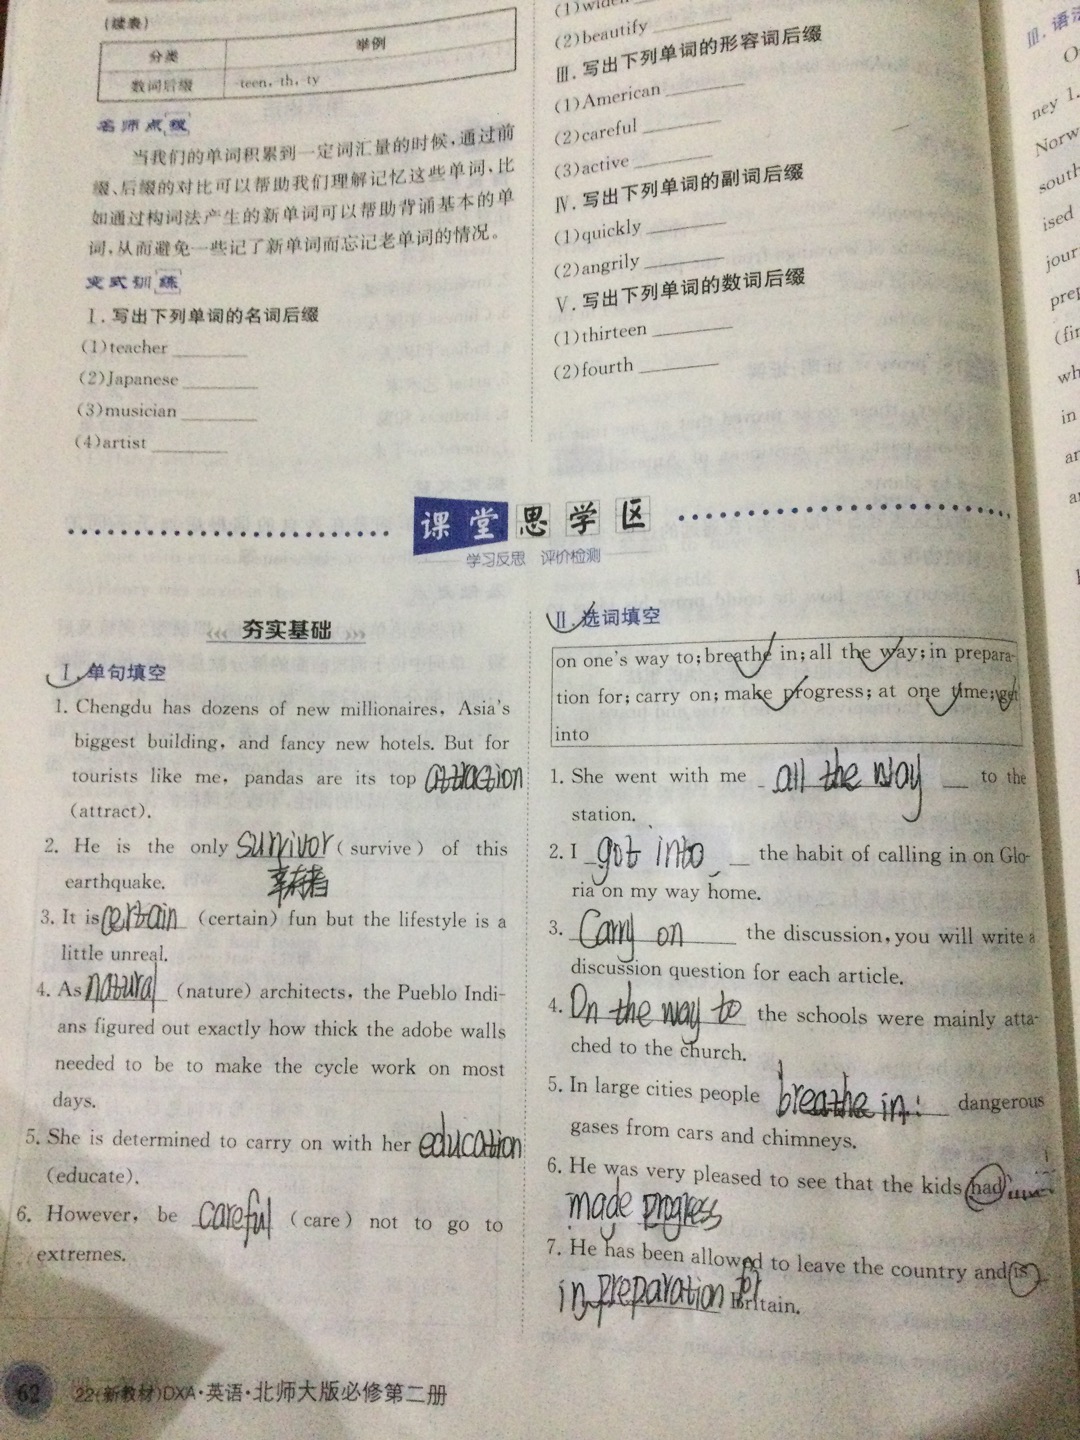 (续表)
分类 举例
数词后缀 -teen, -th, -ty
名师点拨
当我们的单词积累到一定词汇量的时候,通过前
缀、后缀的对比可以帮助我们理解记忆这些单词,比
如通过构词法产生的新单词可以帮助背诵基本的单
词,从而避免一些记了新单词而忘记老单词的情况。
变式训练
Ⅰ.写出下列单词的名词后缀
(1)teacher
(2)Japanese
(3)musician
(4)artist
(1)widen
(2)beautify
Ⅲ.写出下列单词的形容词后缀
(1)American
(2)careful
(3)active
Ⅳ.写出下列单词的副词后缀
(1)quickly
(2)angrily
Ⅴ.写出下列单词的数词后缀
(1)thirteen
(2)fourth
课堂思学区
学习反思 评价检测
夯实基础
Ⅰ.单句填空
1. Chengdu has dozens of new millionaires, Asia's
biggest building, and fancy new hotels. But for
tourists like me, pandas are its top attraction
(attract).
2. He is the only survivor (survive) of this
earthquake.
幸存者
3. It is certain (certain) fun but the lifestyle is a
little unreal.
4. As natural (nature) architects, the Pueblo Indi-
ans figured out exactly how thick the adobe walls
needed to be to make the cycle work on most
days.
5. She is determined to carry on with her education
(educate).
6. However, be careful (care) not to go to
extremes.
Ⅱ.选词填空
on one's way to; breathe in; all the way; in prepara-
tion for; carry on; make progress; at one time; get
into
1. She went with me all the way to the
station.
2. I got into the habit of calling in on Glo-
ria on my way home.
3. Carry on the discussion, you will write a
discussion question for each article.
4. On the way to the schools were mainly atta-
ched to the church.
5. In large cities people breathe in dangerous
gases from cars and chimneys.
6. He was very pleased to see that the kids had
made progress
7. He has been allowed to leave the country and is
in preparation for Britain.
62 22(新教材)DXA·英语·北师大版必修第二册
Ⅲ.语法
ney 1.
Norw
south
ised
jour
prep
(fin
wh
in